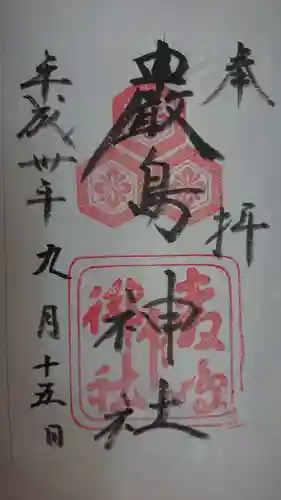 奉拝
厳島神社
平成卅年九月十五日